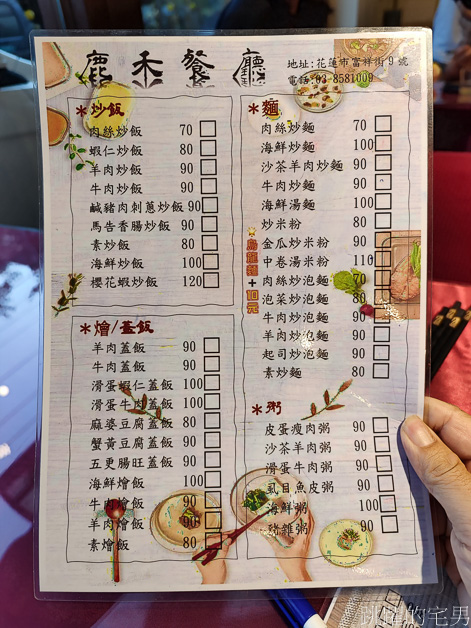 鹿禾餐廳
地址:花蓮市富祥街9號
電話:03 8581009
*炒飯
肉絲炒飯 70
蝦仁炒飯 80
羊肉炒飯 90
牛肉炒飯 90
鹹豬肉刺蔥炒飯 90
馬告香腸炒飯 90
素炒飯 80
海鮮炒飯 100
櫻花蝦炒飯 120
*燴/蓋飯
羊肉蓋飯 90
牛肉蓋飯 90
滑蛋蝦仁蓋飯 100
滑蛋牛肉蓋飯 100
麻婆豆腐蓋飯 80
蟹黃豆腐蓋飯 90
五更腸旺蓋飯 90
海鮮燴飯 100
牛肉燴飯 90
羊肉燴飯 90
素燴飯 80
*麵
肉絲炒麵 70
海鮮炒麵 100
沙茶羊肉炒麵 90
牛肉炒麵 90
海鮮湯麵 100
炒米粉 80
金瓜炒米粉 90
中卷湯米粉 110
肉絲炒泡麵 70
泡菜炒泡麵 80
牛肉炒泡麵 90
羊肉炒泡麵 90
起司炒泡麵 90
素炒麵 80
烏龍麵+10元
*粥
皮蛋瘦肉粥 90
沙茶羊肉粥 90
滑蛋牛肉粥 90
虱目魚皮粥 90
海鮮粥 100
豬雜粥 90
的宅男